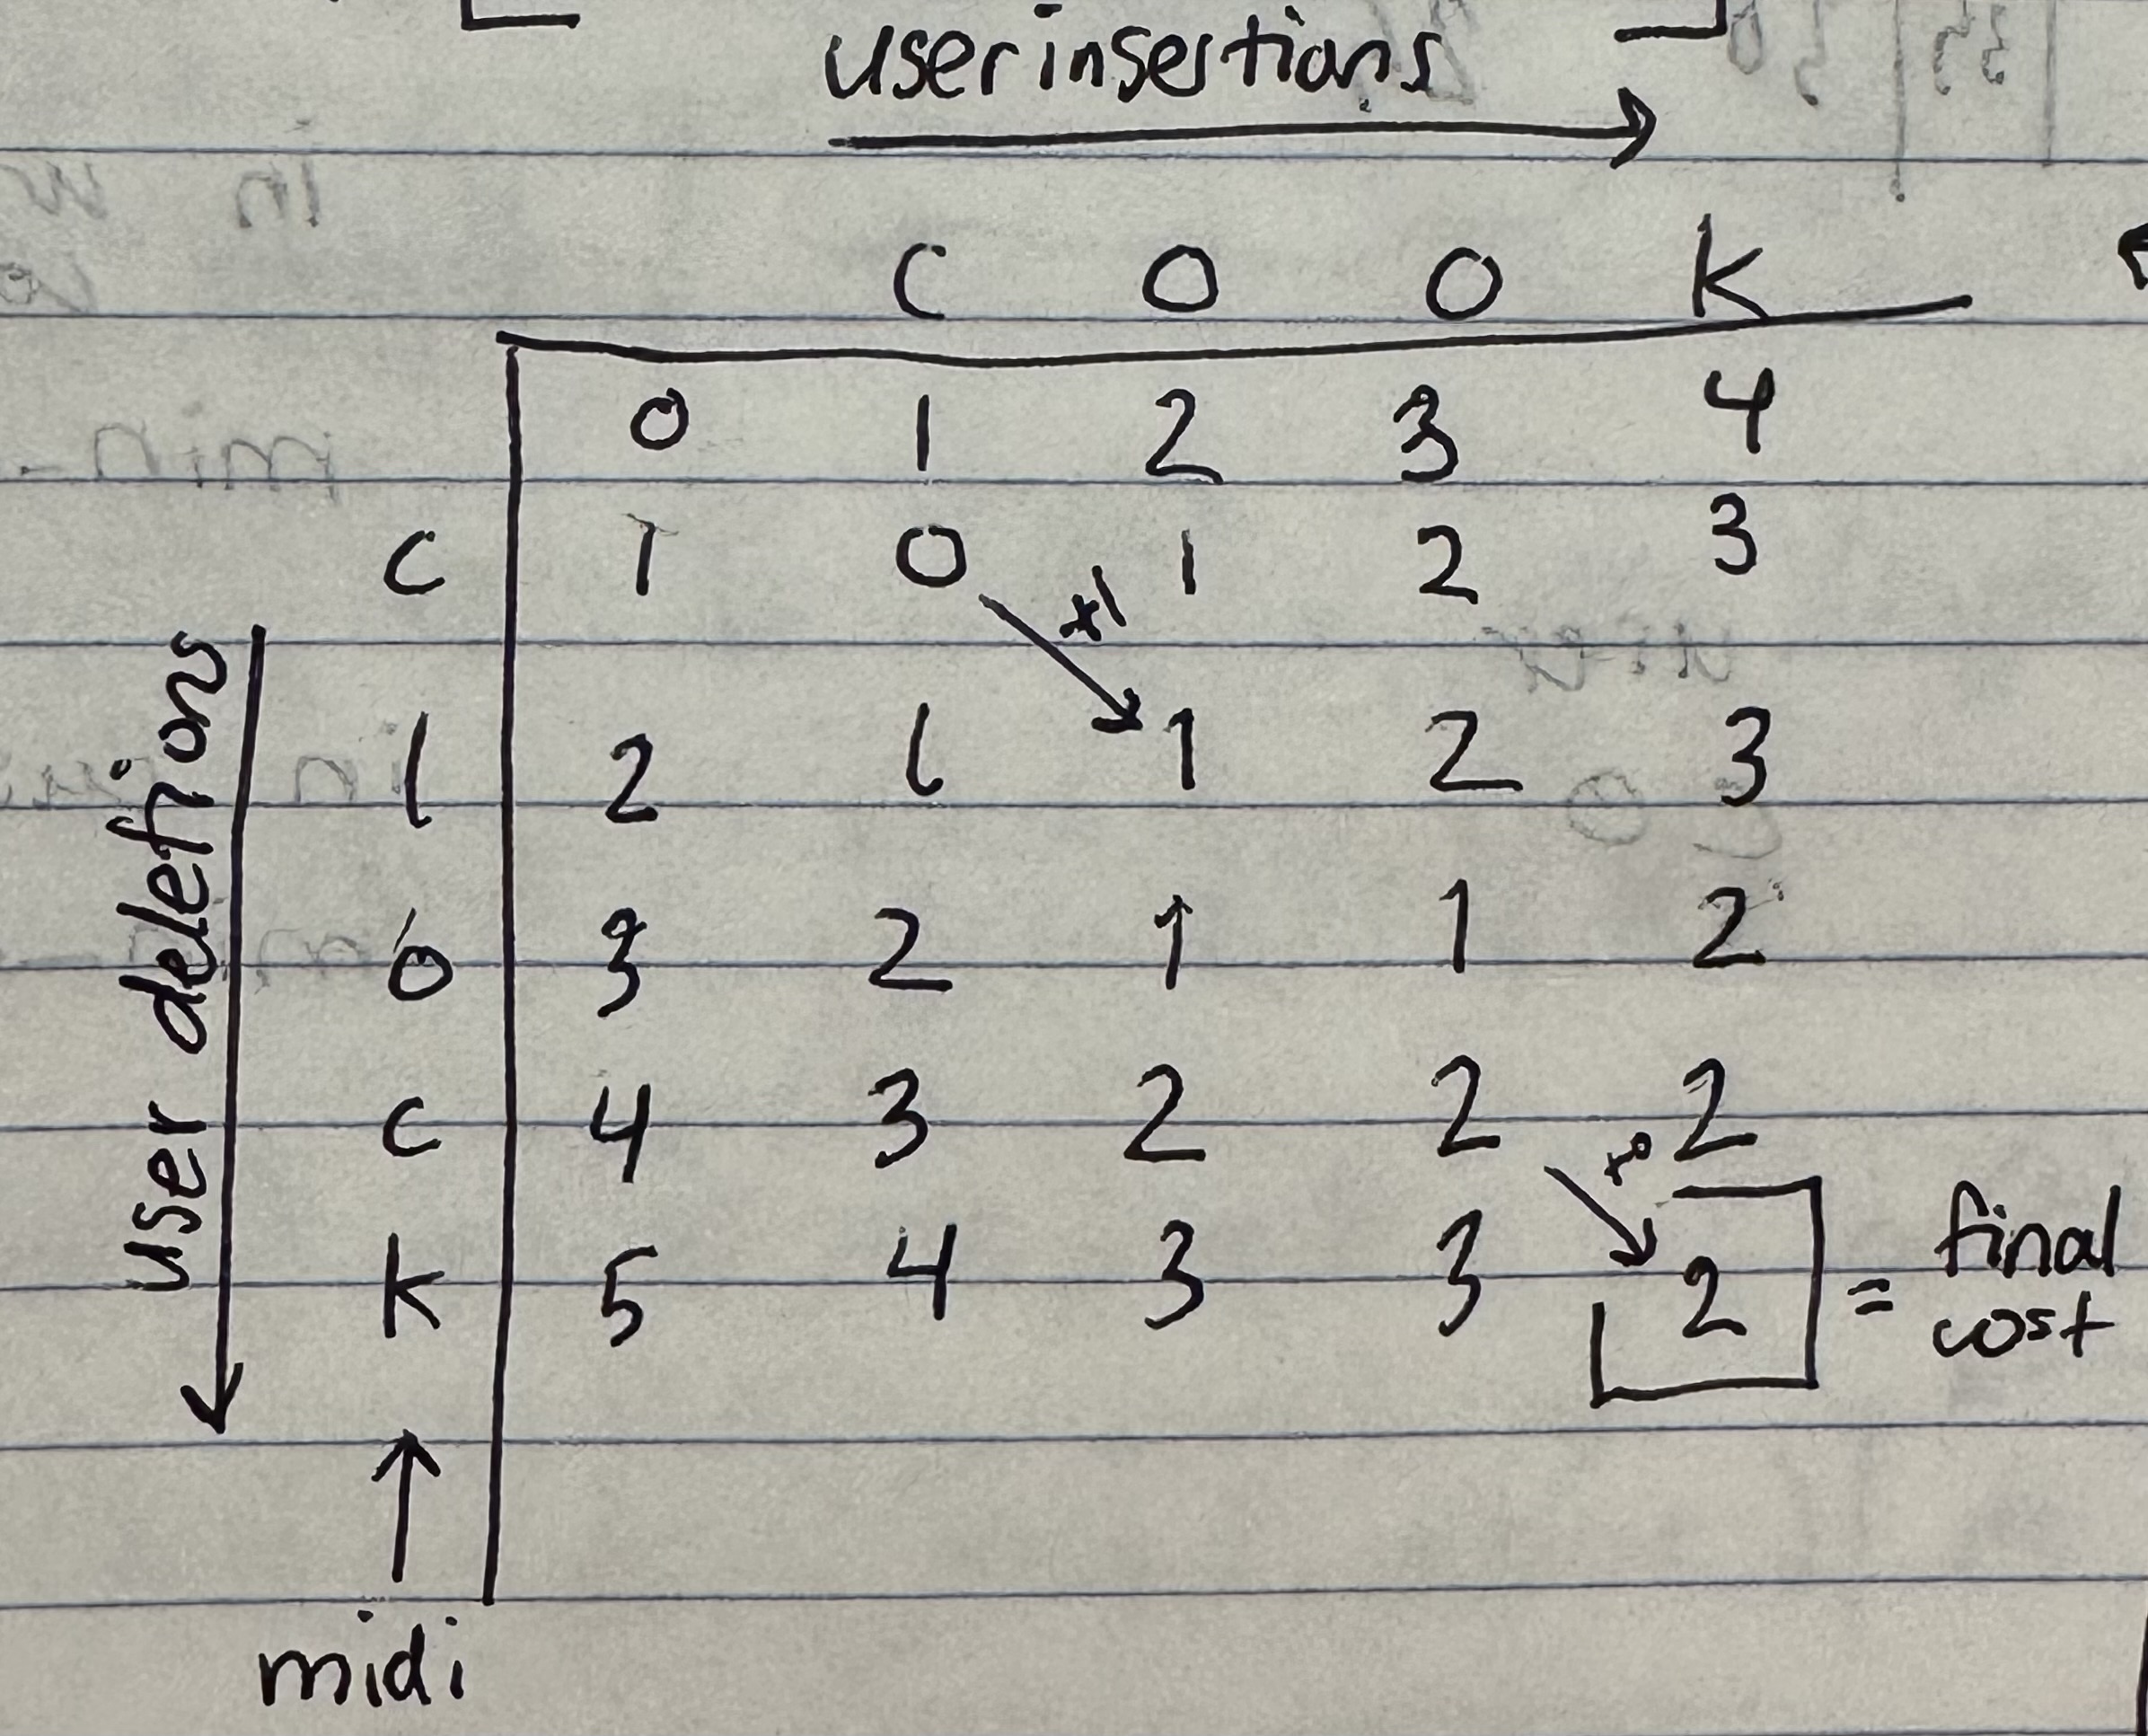 user insertions
C O O K
0 1 2 3 4
C 1 0 1 2 3
+1
l 2 1 1 2 3
o 3 2 1 1 2
c 4 3 2 2 2
+0
K 5 4 3 3 2 = final cost
user deletions
midi